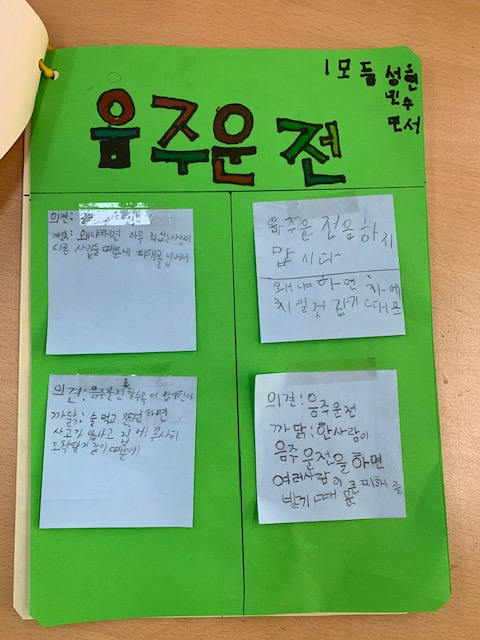 1모둠 성현
민수
면서
음주운전
의견:
까닭: 왜냐하면 아무 죄없는사람이
다른 사람들 때문네 피해를 입어서
음주운전을 하지
맙시다
왜냐하면 차에
치일것 같기 때문
의견: 음주운전
까닭: 술 먹고 운전하면
사고가 나고 집에 무사히
도착할거 같기 때문에
의견: 음주운전
까닭: 한사람이
음주운전을 하면
여러사람이 큰 피해를
받기 때문